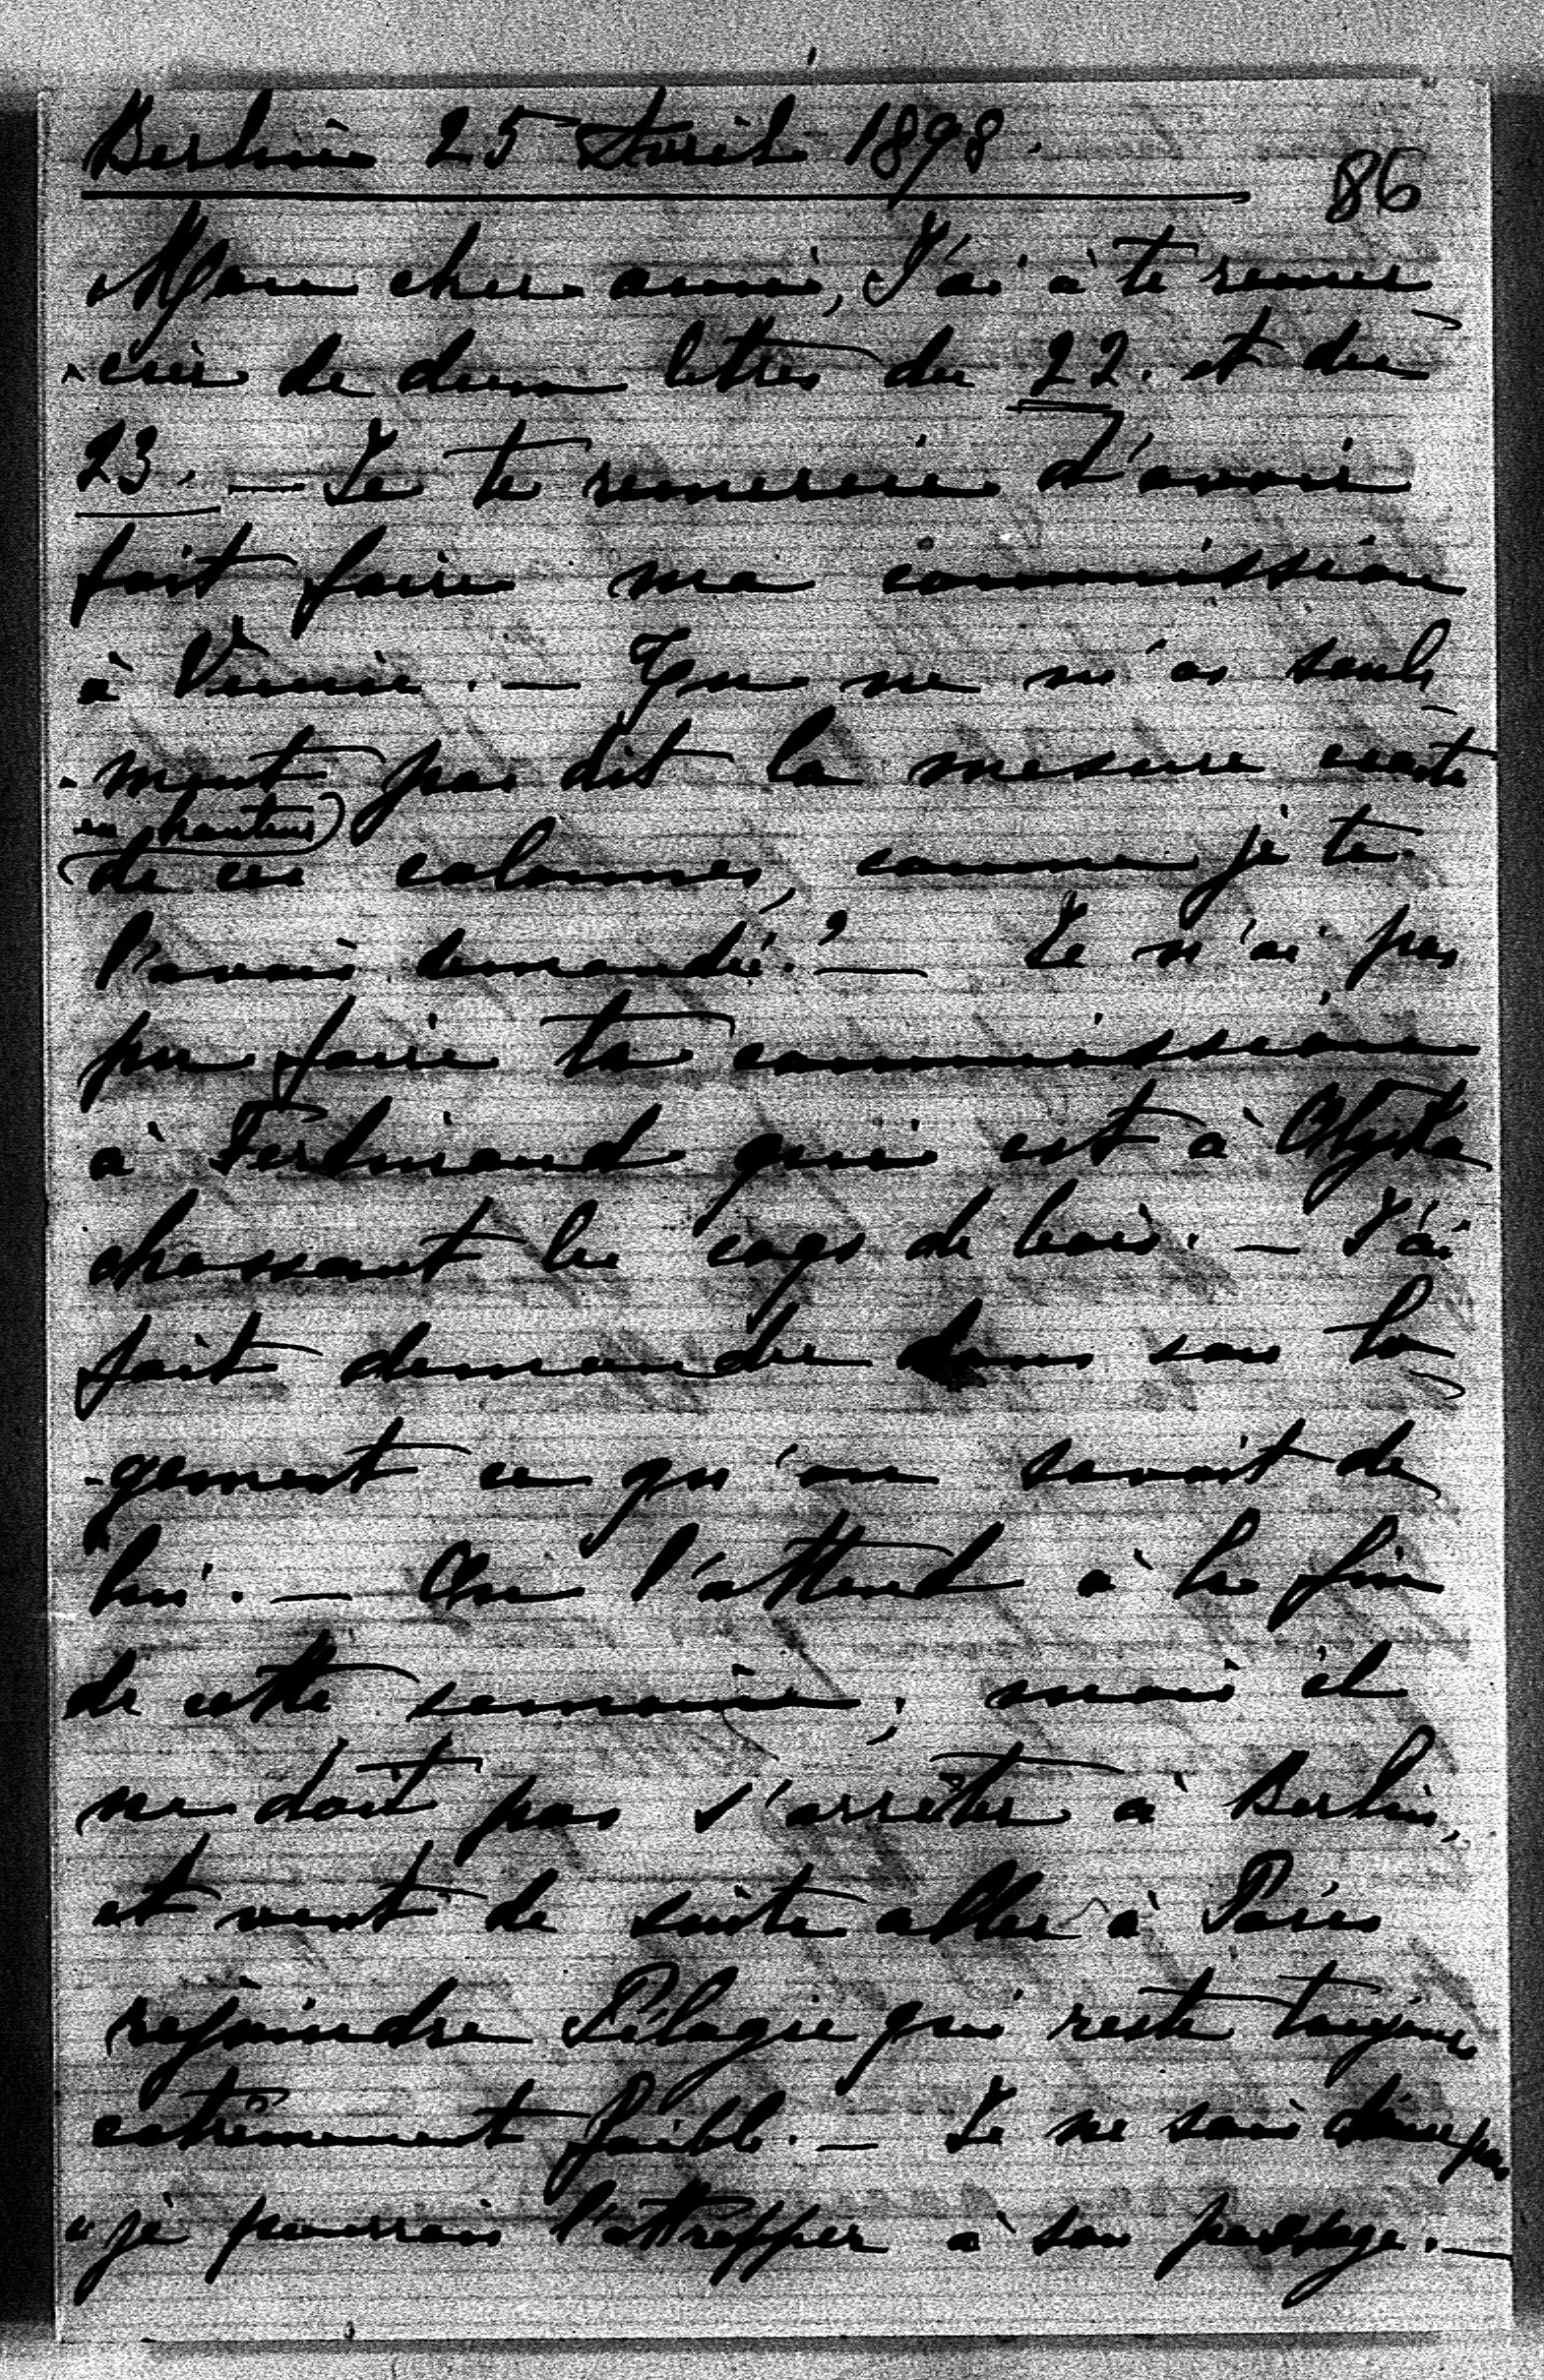 Berlin 25 Avril 1898.
86
Mon cher ami, J'ai à te remer
-cier de deux lettres du 22. et du
23. — Je te remercie d'avoir
fait faire ma commission
à Venise. — Tu ne m'as seule
-ment pas dit la mesure exacte
(en hauteur)
de ces colonnes, comme je te
l'avais demandé? — Je n'ai pas
pu faire ta commission
à Ferdinand qui est à Olyka
chassant les coqs de bois. — J'ai
fait demander dans son lo
-gement ce qu'on savait de
lui. — On l'attend à la fin
de cette semaine; mais il
ne doit pas s'arrêter à Berlin,
et veut de suite aller à Paris
rejoindre Pélagie qui reste toujours
extrêmement faible. — Je ne sais donc pas
si je pourrais l'attrapper à son passage. —